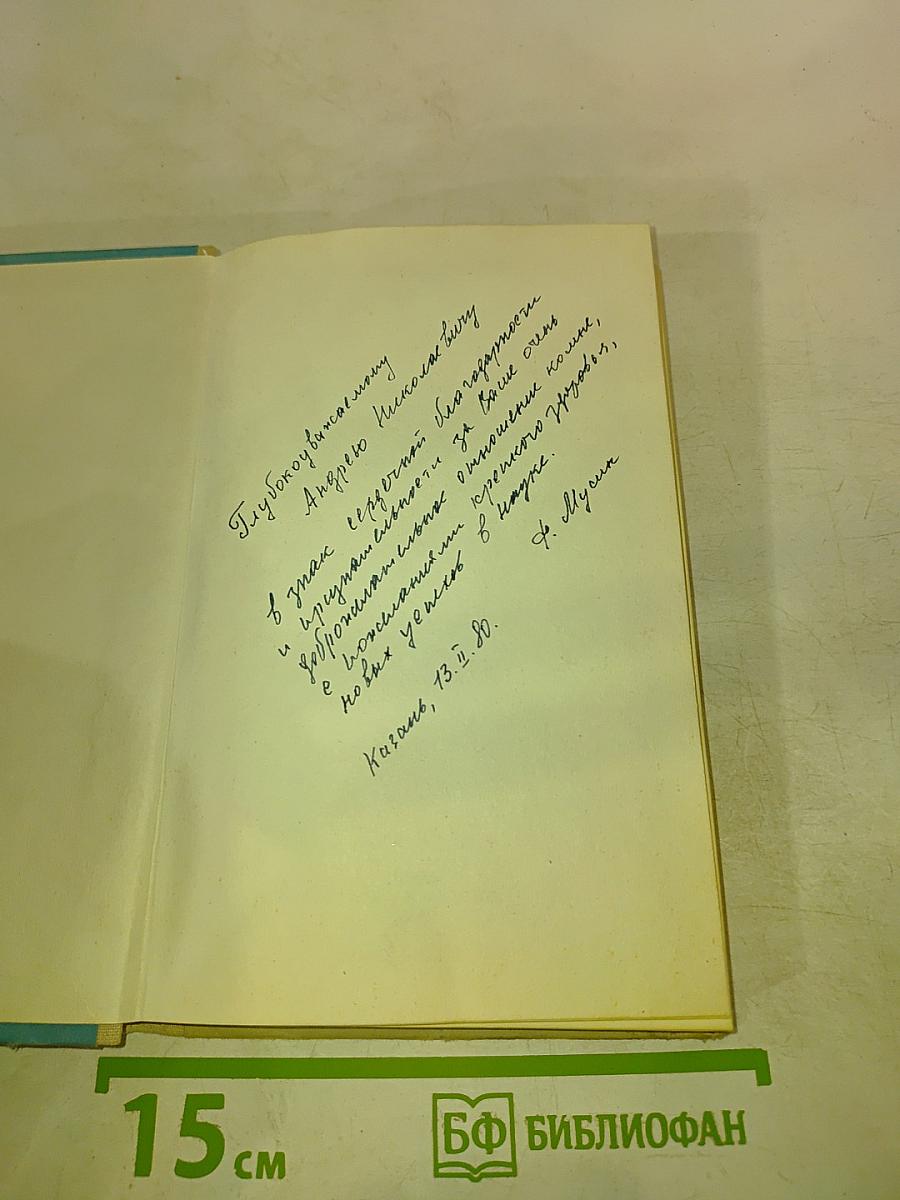 Глубокоуважаемому
Андрею Николаевичу
в знак сердечной благодарности
и признательности за Ваше очень
доброжелательное отношение ко мне,
с пожеланиями крепкого здоровья,
новых успехов в науке.
Ф. Мусин
Казань, 13.II.80.
15 см
БФ БИБЛИОФАН